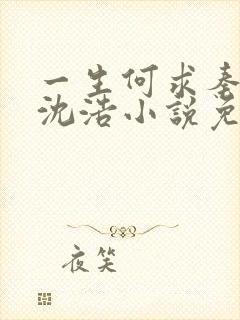 一生何求秦
沈浩小说免
夜笑